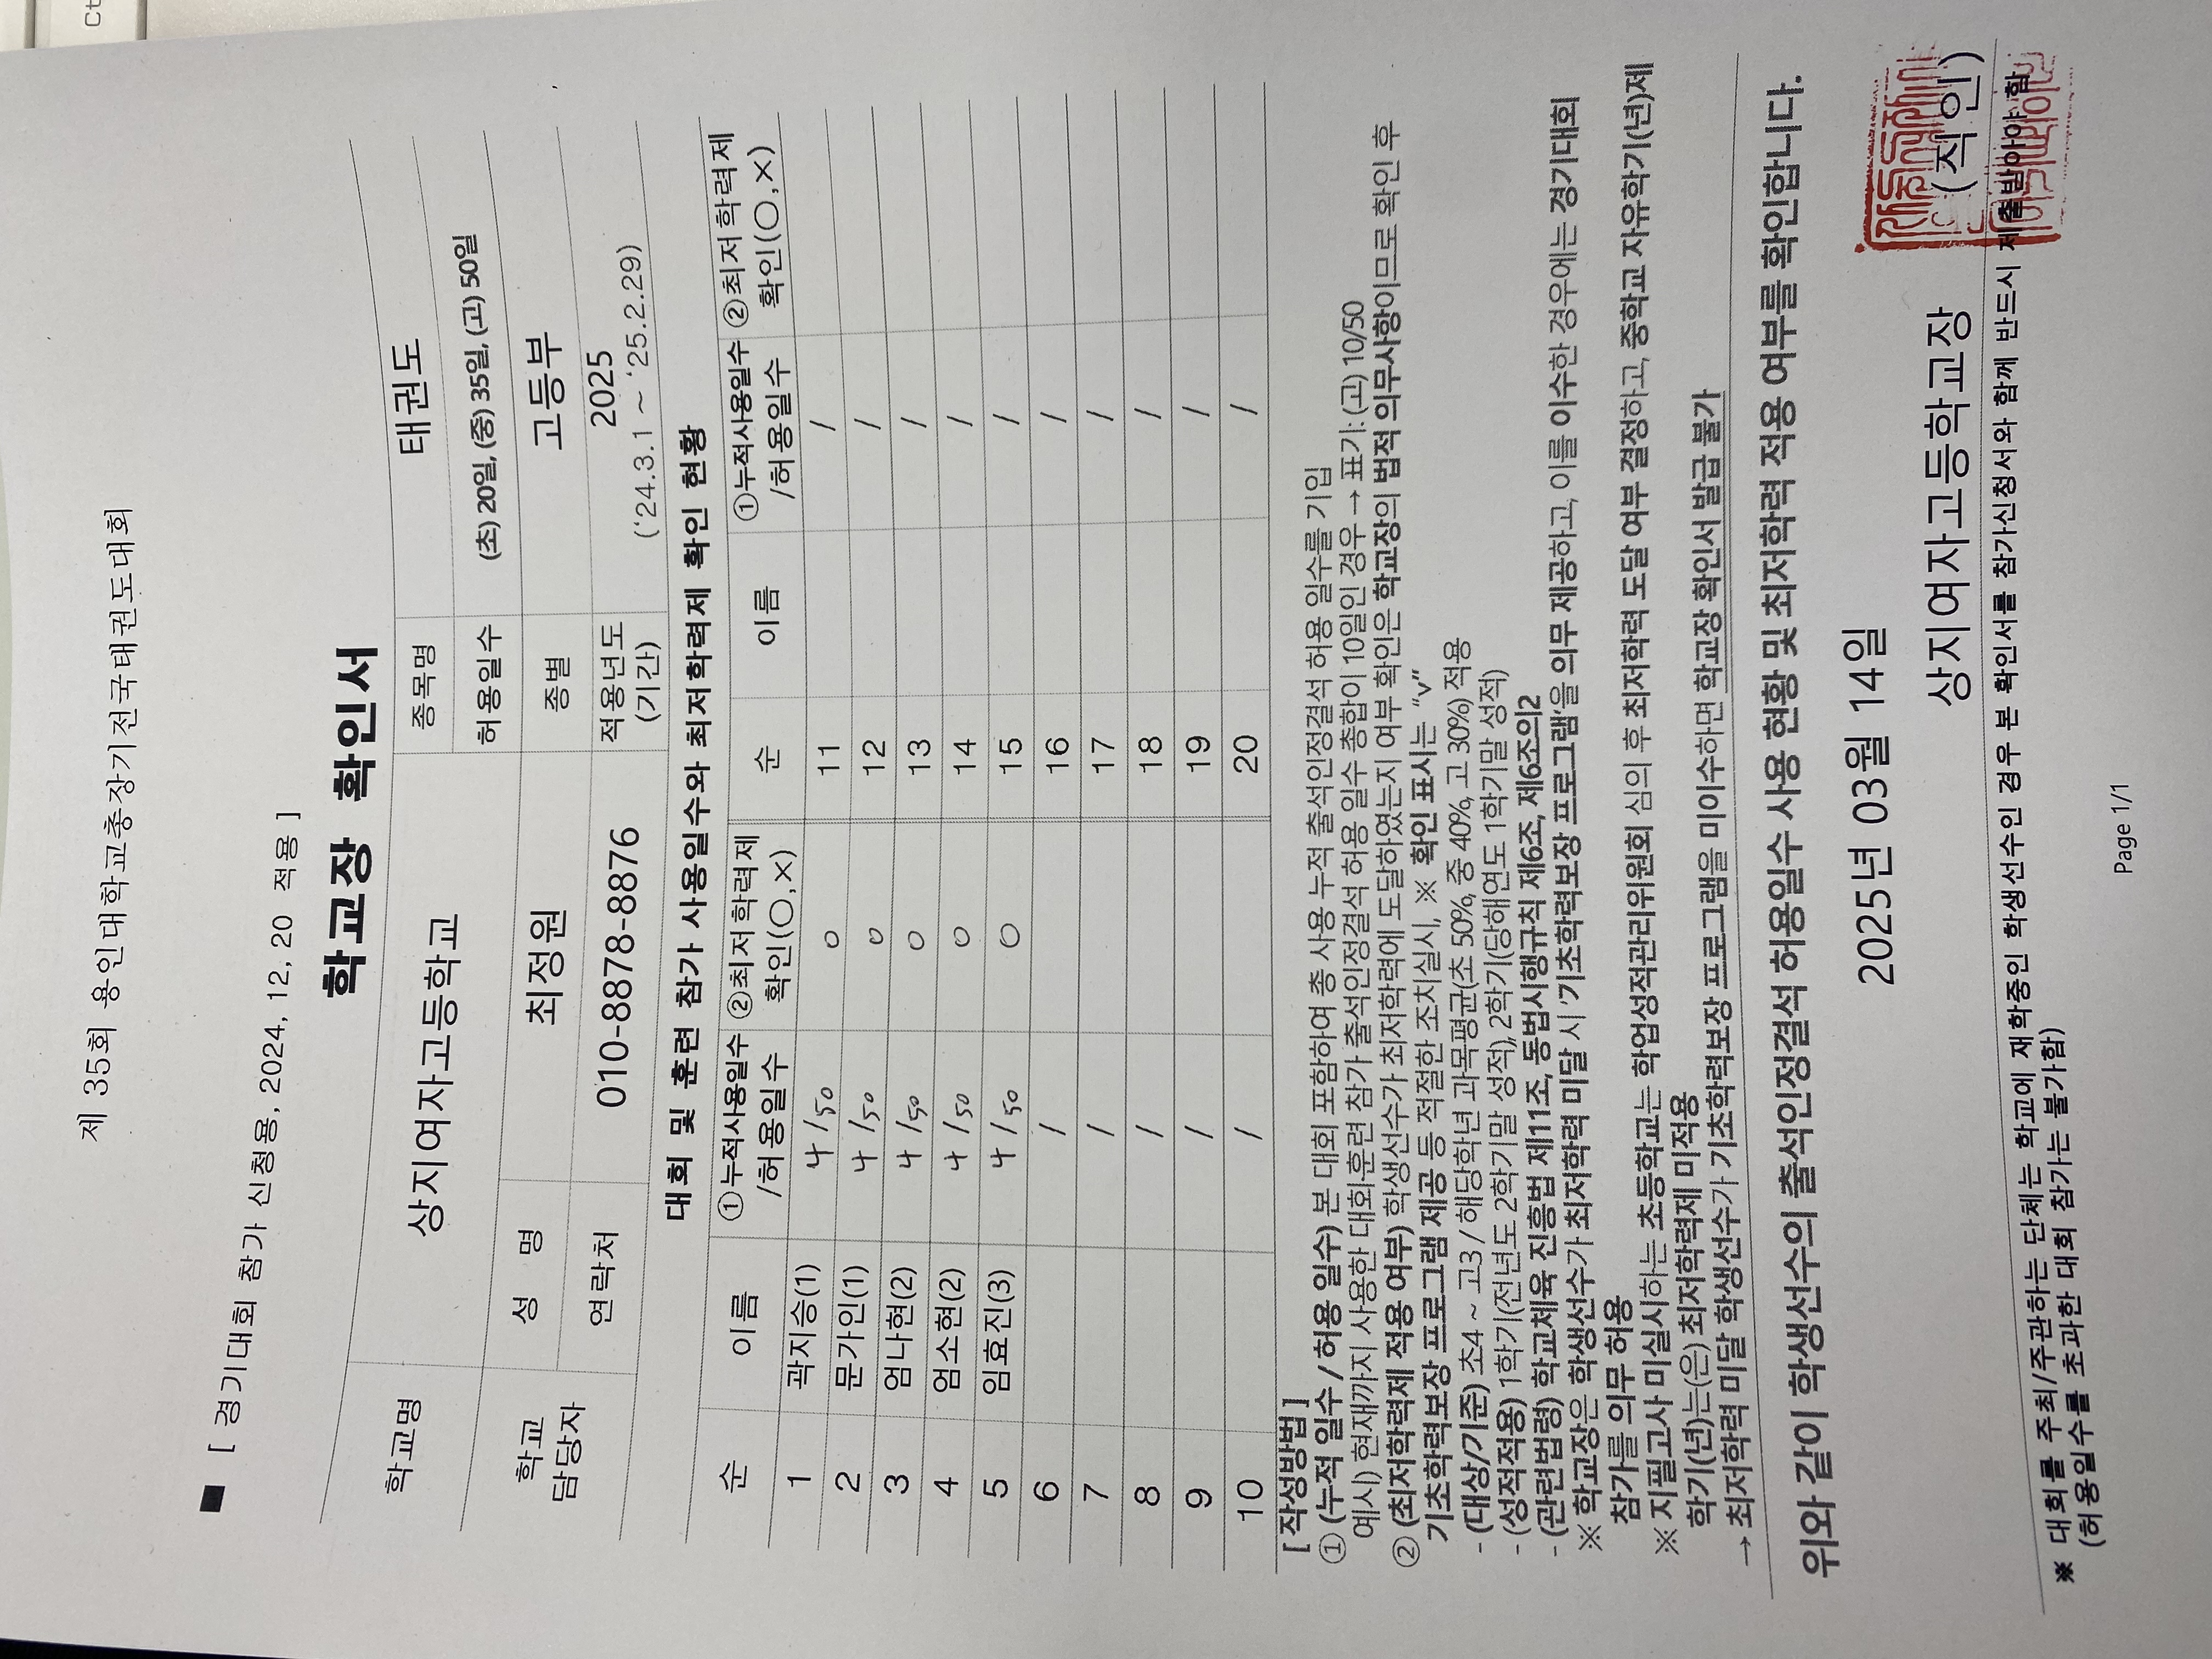 제 35회 용인대학교총장기전국태권도대회
■ [ 경기대회 참가 신청용, 2024, 12, 20 적용 ]
학교장 확인서
학교명 상지여자고등학교 종목명 태권도
허용일수 (초) 20일, (중) 35일, (고) 50일
학교 담당자 성 명 최정원 종별 고등부
연락처 010-8878-8876 적용년도 (기간) 2025 ('24.3.1 ~ '25.2.29)
대회 및 훈련 참가 사용일수와 최저학력제 확인 현황
순 이름 ①누적사용일수 /허용일수 ②최저학력제 확인(○,×) 순 이름 ①누적사용일수 /허용일수 ②최저학력제 확인(○,×)
1 곽지승(1) 4/50 ○ 11 /
2 문가인(1) 4/50 ○ 12 /
3 엄나현(2) 4/50 ○ 13 /
4 엄소현(2) 4/50 ○ 14 /
5 임효진(3) 4/50 ○ 15 /
6 / 16 /
7 / 17 /
8 / 18 /
9 / 19 /
10 / 20 /
[ 작성방법 ]
① (누적 일수 / 허용 일수) 본 대회 포함하여 총 사용 누적 출석인정결석 허용 일수를 기입
예시) 현재까지 사용한 대회훈련 참가 출석인정결석 허용 일수 총합이 10일인 경우 → 표기: (고) 10/50
② (최저학력제 적용 여부) 학생선수가 최저학력에 도달하였는지 여부 확인은 학교장의 법적 의무사항이므로 확인 후
기초학력보장 프로그램 제공 등 적절한 조치실시, ※ 확인 표시는 "v"
- (대상/기준) 초4 ~ 고3 / 해당학년 과목평균(초 50%, 중 40%, 고 30%) 적용
- (성적적용) 1학기(전년도 2학기말 성적), 2학기(당해연도 1학기말 성적)
- (관련법령) 학교체육 진흥법 제11조, 동법시행규칙 제6조, 제6조의2
※ 학교장은 학생선수가 최저학력 미달 시 '기초학력보장 프로그램'을 의무 제공하고, 이를 이수한 경우에는 경기대회
참가를 의무 허용
※ 지필고사 미실시하는 초등학교는 학업성적관리위원회 심의 후 최저학력 도달 여부 결정하고, 중학교 자유학기(년)제
학기(년)는(은) 최저학력제 미적용
→ 최저학력 미달 학생선수가 기초학력보장 프로그램을 미이수하면 학교장 확인서 발급 불가
위와 같이 학생선수의 출석인정결석 허용일수 사용 현황 및 최저학력 적용 여부를 확인합니다.
2025년 03월 14일
상지여자고등학교장 (직인)
※ 대회를 주최/주관하는 단체는 학교에 재학중인 학생선수인 경우 본 확인서를 참가신청서와 함께 반드시 제출받아야 함
(허용일수를 초과한 대회 참가는 불가함)
Page 1/1